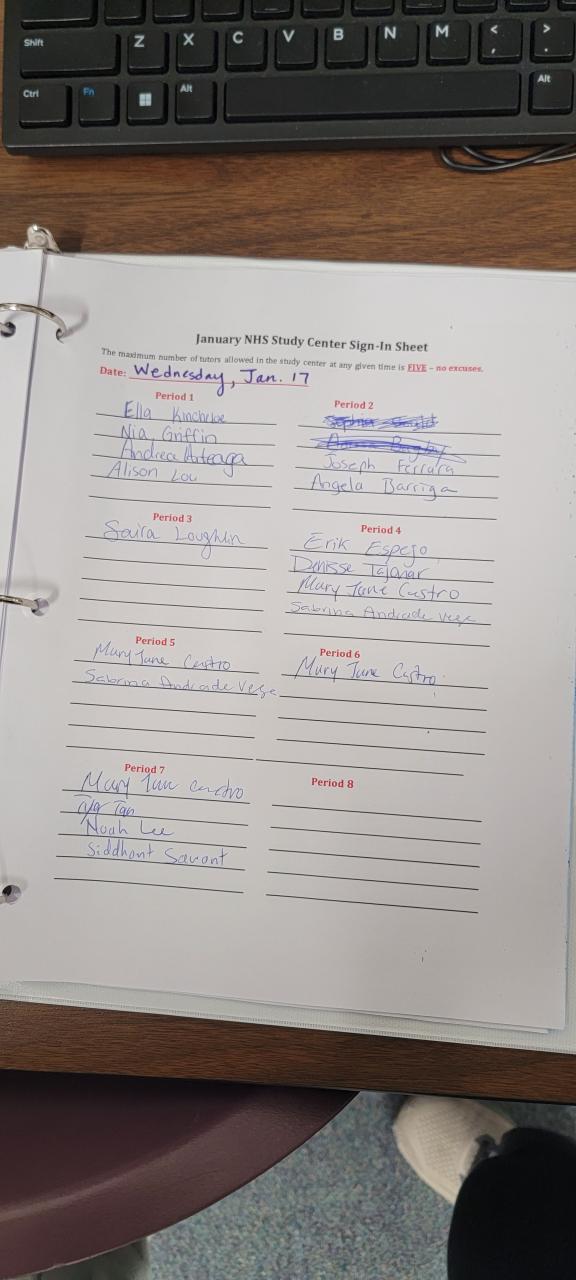 Shift Z X C V B N M < , > .
Ctrl Fn Alt Alt
January NHS Study Center Sign-In Sheet
The maximum number of tutors allowed in the study center at any given time is FIVE – no excuses.
Date: Wednesday, Jan. 17
Period 1
Ella Kincheloe
Nia Griffin
Andrea Arteaga
Alison Lou
Period 2
Joseph Ferrara
Angela Barriga
Period 3
Saira Loughlin
Period 4
Erik Espejo
Denisse Tajonar
Mary Jane Castro
Sabrina Andrade Vega
Period 5
Mary Jane Castro
Sabrina Andrade Vega
Period 6
Mary Jane Castro
Period 7
Mary Jane Castro
Tan
Noah Lee
Siddhant Savant
Period 8